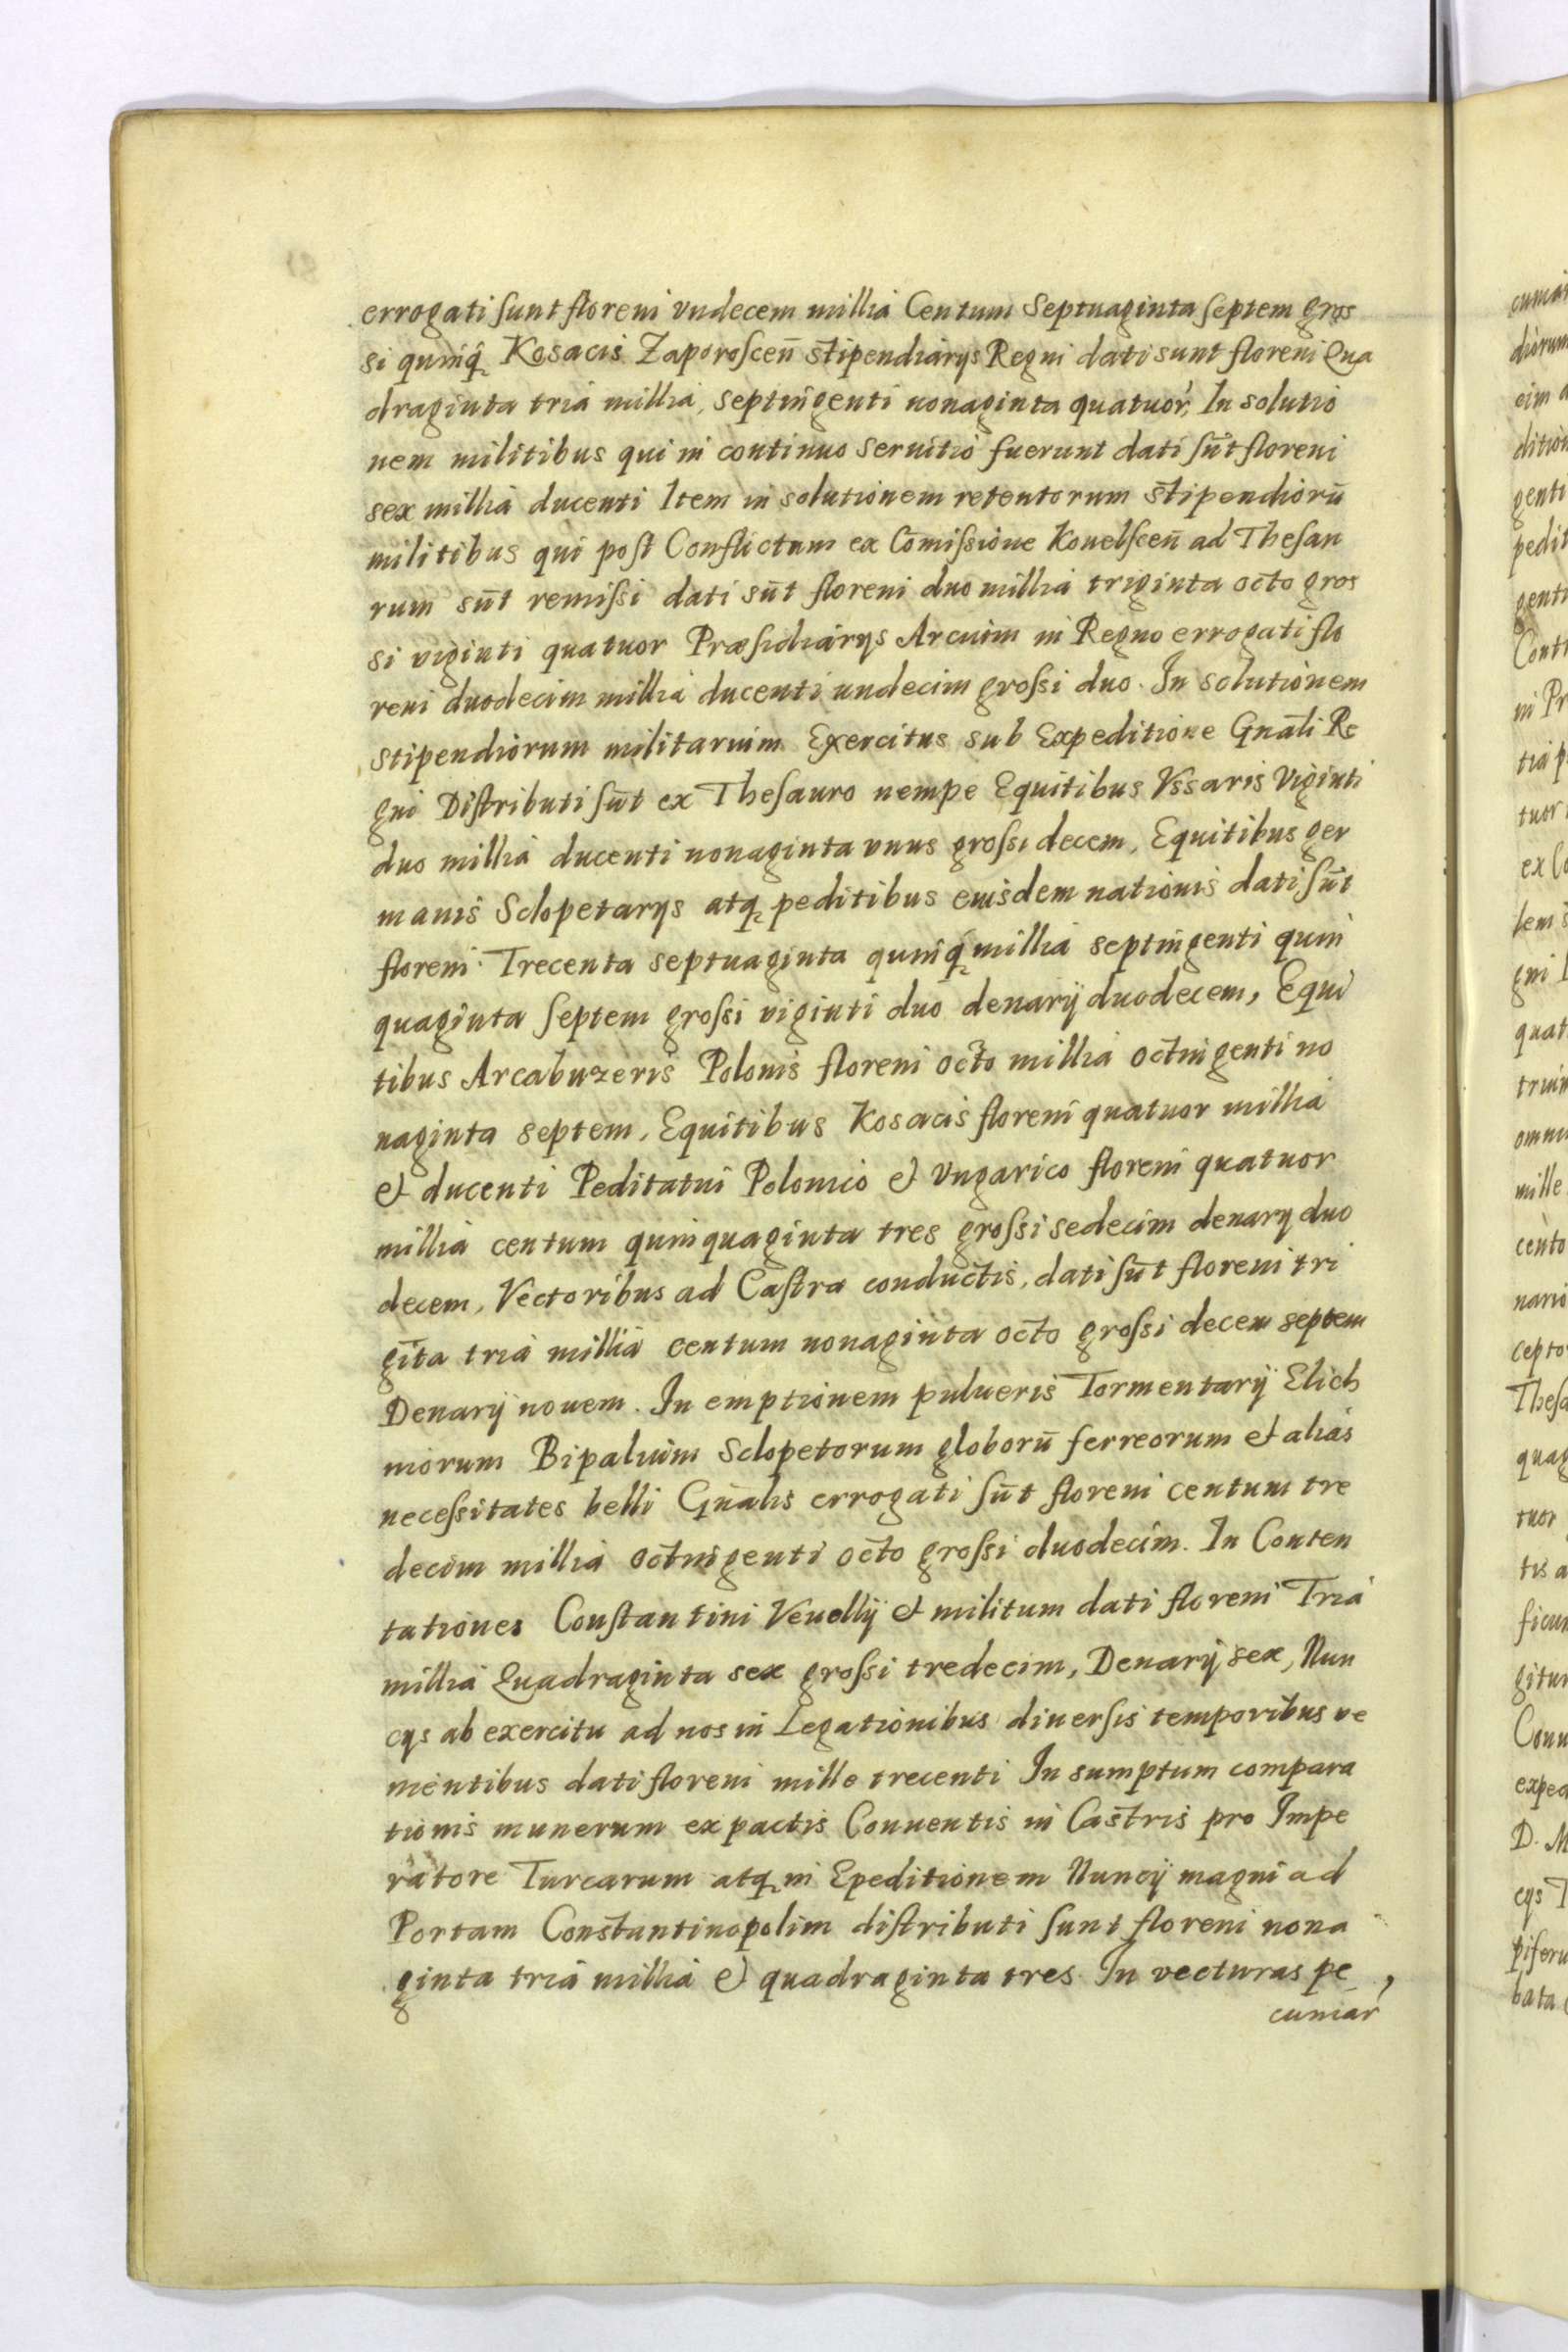 errogati sunt floreni vndecem millia Centum Septuaginta septem gros
si quinq̨ Kosacis Zaporoscen̄ stipendiarys Regni dati sunt floreni Qua
draginta tria millia, septingenti nonaginta quatuor, In solutio
nem militibus qui in continuo seruitio fuerunt dati sūt floreni
sex millia ducenti Item in solutionem retentorum stipendiorū
militibus qui post Conflictum ex Comissione Kouelscen̄ ad Thesau
rum sūt remissi dati sūt floreni duo millia triginta octo gros
si viginti quatuor Præsidiarys Arcium in Regno errogati flo
reni duodecim millia ducenti undecim grossi duo. In solutionem
stipendiorum militarium Exercitus sub Expeditione Gnāli Re
gni Distributi sūt ex Thesauro nempe Equitibus Vssaris Viginti
duo millia ducenti nonaginta vnus grossi decem, Equitibus ger
manis Sclopetarys atq̨ peditibus eiusdem nationis dati sūt
floreni Trecenta septuaginta quinq̨ millia septingenti quin
quaginta septem grossi viginti duo denarÿ duodecem, Equi
tibus Arcabuzeris Polonis floreni octo millia octingenti no
naginta septem, Equitibus Kosacis floreni quatuor millia
et ducenti Peditatui Polonico et Vngarico floreni quatuor
millia centum quinquaginta tres grossi sedecim denary duo
decem, Vectoribus ad Castra conductis, dati sūt floreni tri
gīta tria millia centum nonaginta octo grossi decem septem
Denarÿ nouem. In emptionem pulueris Tormentarÿ Elich
niorum Bipalium Sclopetorum globorū ferreorum et alias
necessitates belli Gnālis errogati sūt floreni centum tre
decim millia octingenti octo grossi duodecim. In Conten
tationes Constantini Veuellÿ et militum dati floreni Tria
millia Quadraginta sex grossi tredecim, Denarÿ sex, Nun
cys ab exercitu ad nos in Legationibus diuersis temporibus ve
nientibus dati floreni mille trecenti In sumptum compara
tionis munerum ex pactis Conuentis in Castris pro Impe
ratore Turcarum atq̨ in Epeditionem Nuncÿ magni ad
Portam Constantinopolim distributi sunt floreni nona
ginta tria millia et quadraginta tres In vecturas pe
cuniar